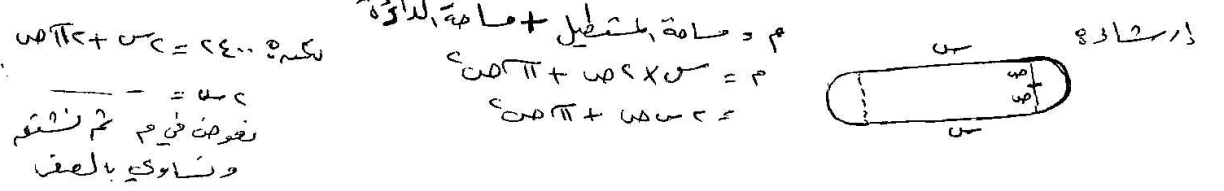 إرشاد:
س
ص
ص
س
م = مساحة المستطيل + مساحة الدائرة
م = س × ٢ص + π ص٢
= ٢ س ص + π ص٢
لكن: ٢٤٠٠ = ٢س + ٢πص
٢س = ــــــ
نعوض في م ثم نشتق
ونساوي بالصفر